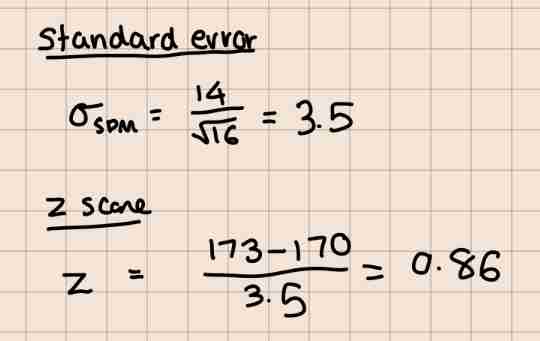 Standard error
σ_SDM = 14/√16 = 3.5
z score
z = 173-170/3.5 = 0.86